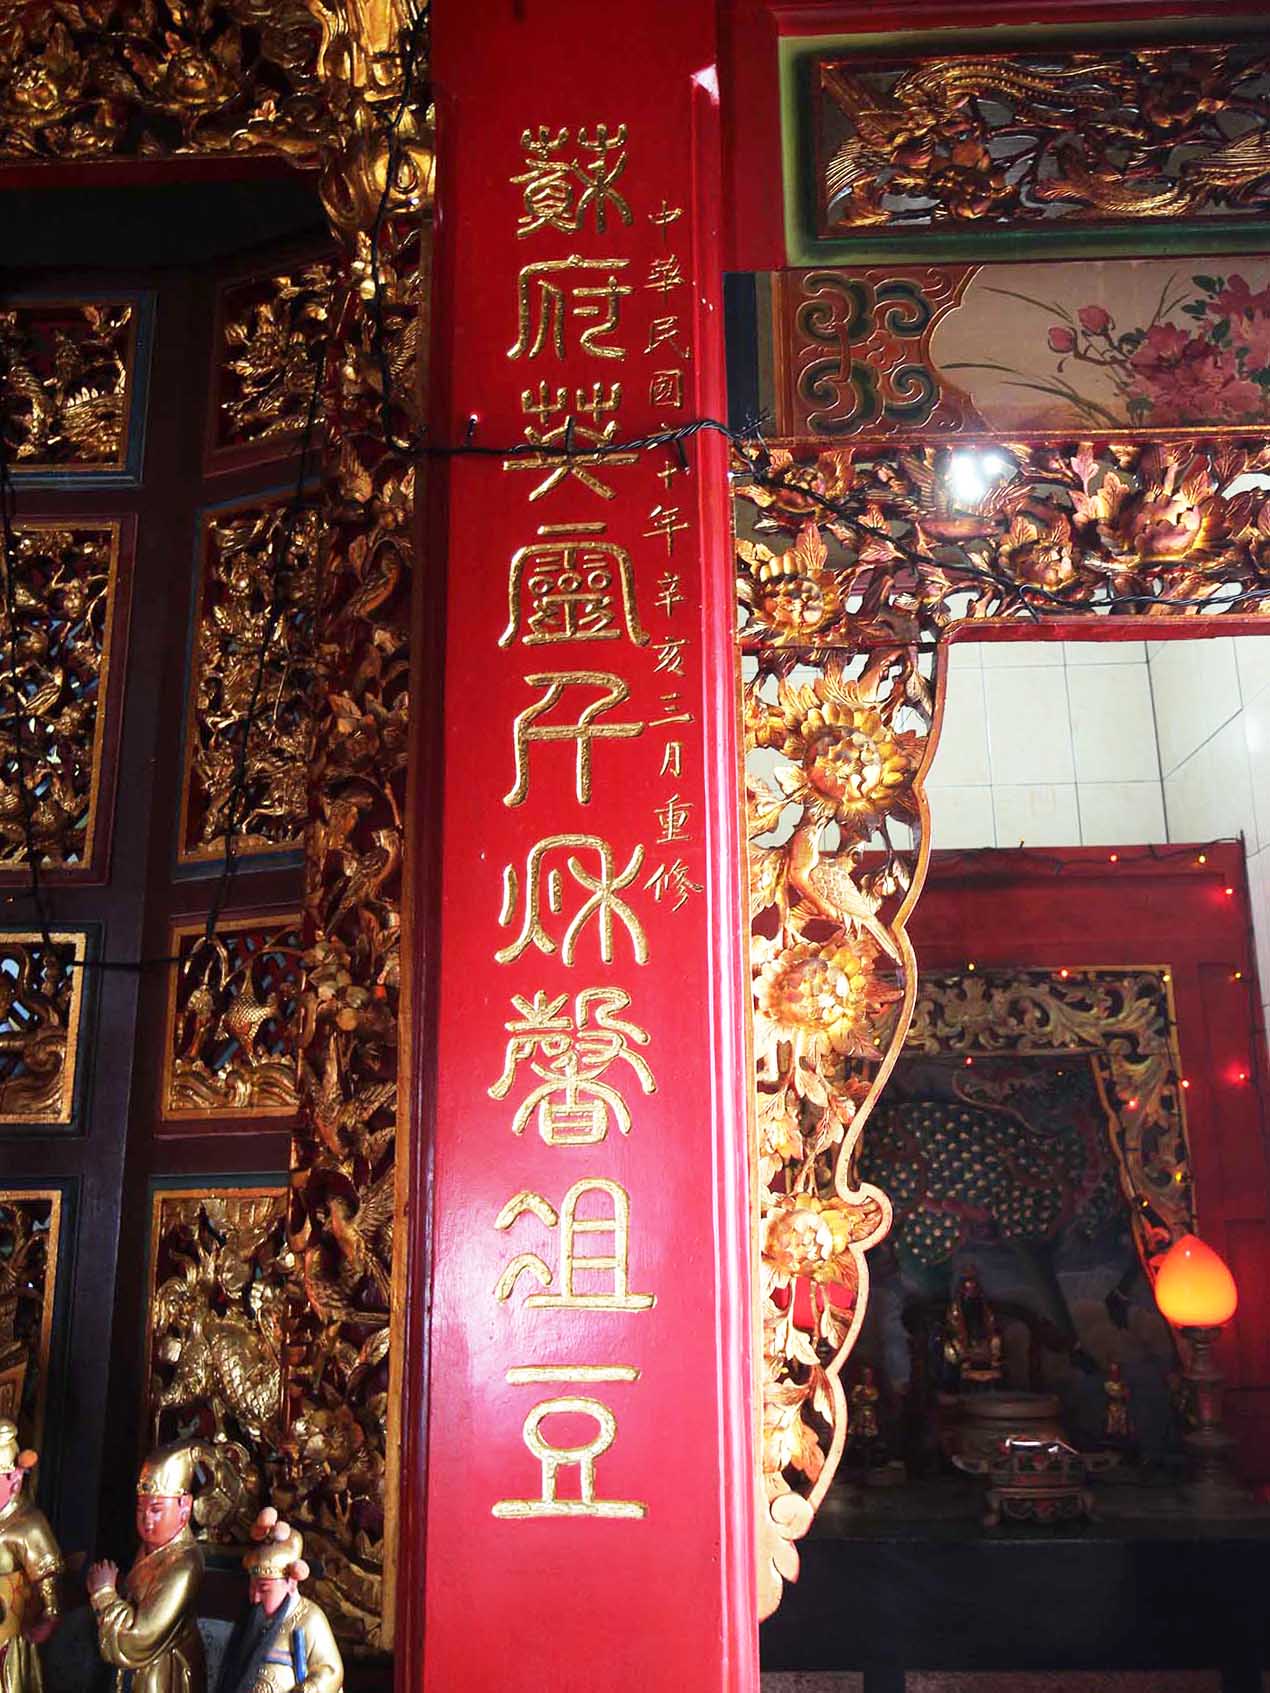 中華民國六十年辛亥三月重修
蘇府英靈千秋馨俎豆